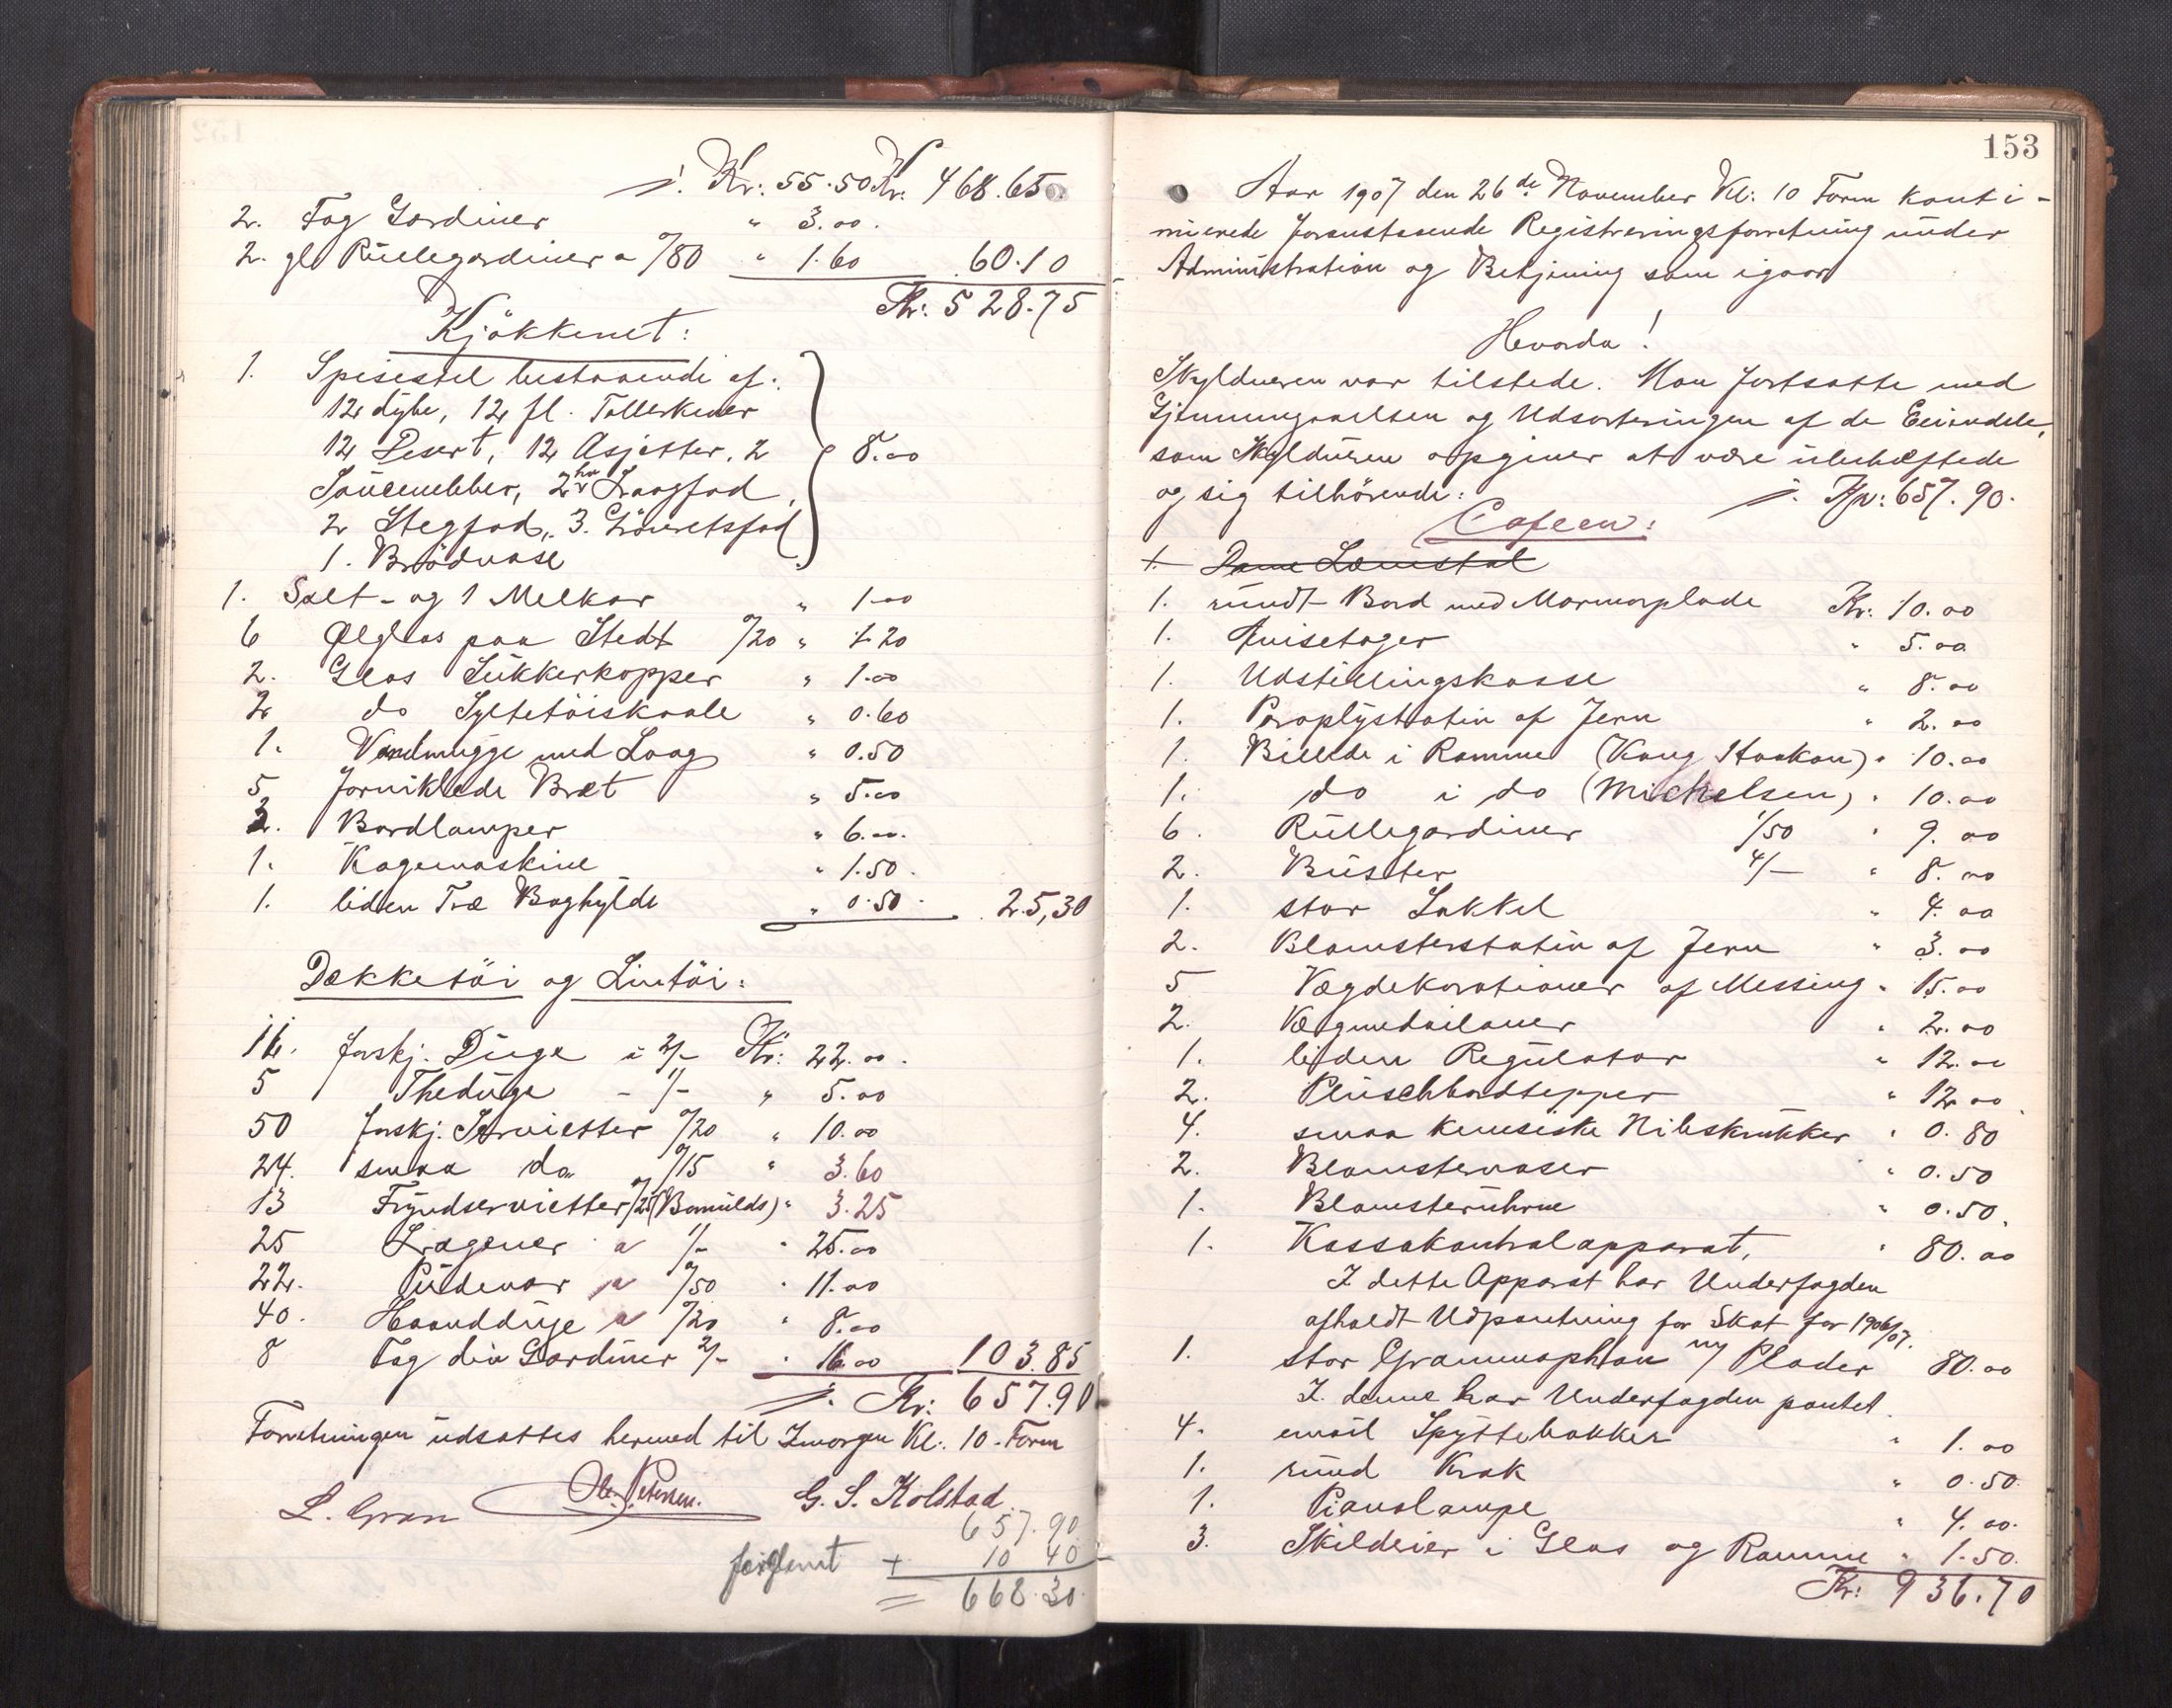 ÷. Kr: 55.50 Kr: 468.65
2. Fag Gardiner " 3.00.
2. gl. Rullegardiner a º/80 " 1.60 60.10
Kr: 528.75
Kjökkenet:
1. Spisestel bestaaende af:
12 dybe, 12 fl. Tallerkener
12 Desert, 12 Asjetter, 2 8.00
Saucenebber, 2 Laagfad,
2 Stegfad, 3.
1. Brödvase
1. Salt- og 1 Melkar " 1.00
6 Ølglas paa Stedt º/20 " 1.20
2. Glas Sukkerkopper " 1.00
2 do Syltetöiskaale " 0.60
1. Vandmugge med Laag " 0.50
5 forniklede Bræt " 5.00
2. Bordlamper " 6.00.
1. Kagemaskine " 1.50.
1. liden Træ Boghylde " 0.50. 25,30
Dækketöi og Lintöi:
11. forskj. Duge à 2/- Kr: 22.00.
5 Theduge - 1/- " 5.00
50 forskj. Servietter º/20 " 10.00
24. smaa do º/15 " 3.60
13 Fryndservietter º/25 (Bomulds) " 3.25
25 Lagener a 1/- " 25.00
22. Pudevar a º/50 " 11.00
40. Haandduge a º/20 " 8.00
8 Fag div Gardiner 2/- " 16.00 103.85
÷. Kr: 657.90
Forretningen udsattes hermed til Imorgen Kl: 10 Form
L. Gran Ole Petersen. G. S. Kolstad.
657.90
forglemt + 10 40
= 668.30
153
Aar 1907 den 26de November Kl: 10 Form konti-
nuerede foranstaaende Registreringsforretning under
Administration og Betjening som igaar
Hvorda!
Skyldneren var tilstede. Man fortsatte med
Gjennemgaaelsen og Udsorteringen af de Eiendele,
som Skyldneren opgiver at være ubehæftede
og sig tilhörende: ÷. Kr: 657.90.
Cafeen:
1. Dame Lænestol
1. rundt Bord med Marmorplade Kr: 10.00
1. Avisetager " 5.00
1. Udstillingskasse " 8.00
1. Paraplystativ af Jern " 2.00
1. Billede i Ramme (Kong Haakon) " 10.00
1. do i do (Michelsen) " 10.00
6. Rullegardiner 1/50 " 9.00
2. Buster 4/- " 8.00
1. stor Sokkel " 4.00
2. Blomsterstativ af Jern " 3.00
5 Vægdekorationer af Messing " 15.00
2. Vægmedailoner " 2.00
1. liden Regulator " 12.00
2. Pluschbordtepper " 12.00
4. smaa kinesiske Nipskrukker " 0.80
2. Blomstervaser " 0.50
1. Blomsterurne " 0.50.
1. Kassakontrolapparat, " 80.00
I dette Apparat har Underfogden
afholdt Udpantning for Skat for 1906/07.
1. stor Grammophon m/ Plader 80.00
I denne har Underfogden pantet.
4. email Spyttebakker " 1.00
1. rund Krak " 0.50.
1. Pianolampe " 4.00.
3. Skilderier i Glas og Ramme " 1.50.
Kr: 936.70